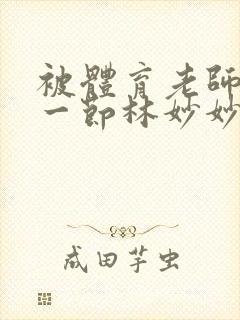 被體育老師
一節林妙妙
成田芋虫